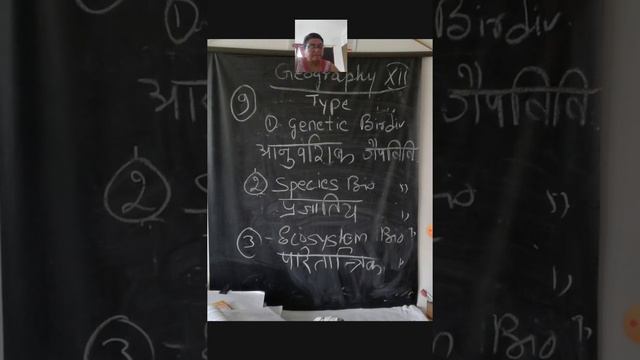 Geography XII
9 Type
① Genetic Birdiv
आनुवंशिक जैवविवि
② Species Bio "
प्रजातिय "
③ - Ecosystem Bio "
पारितान्त्रिक "